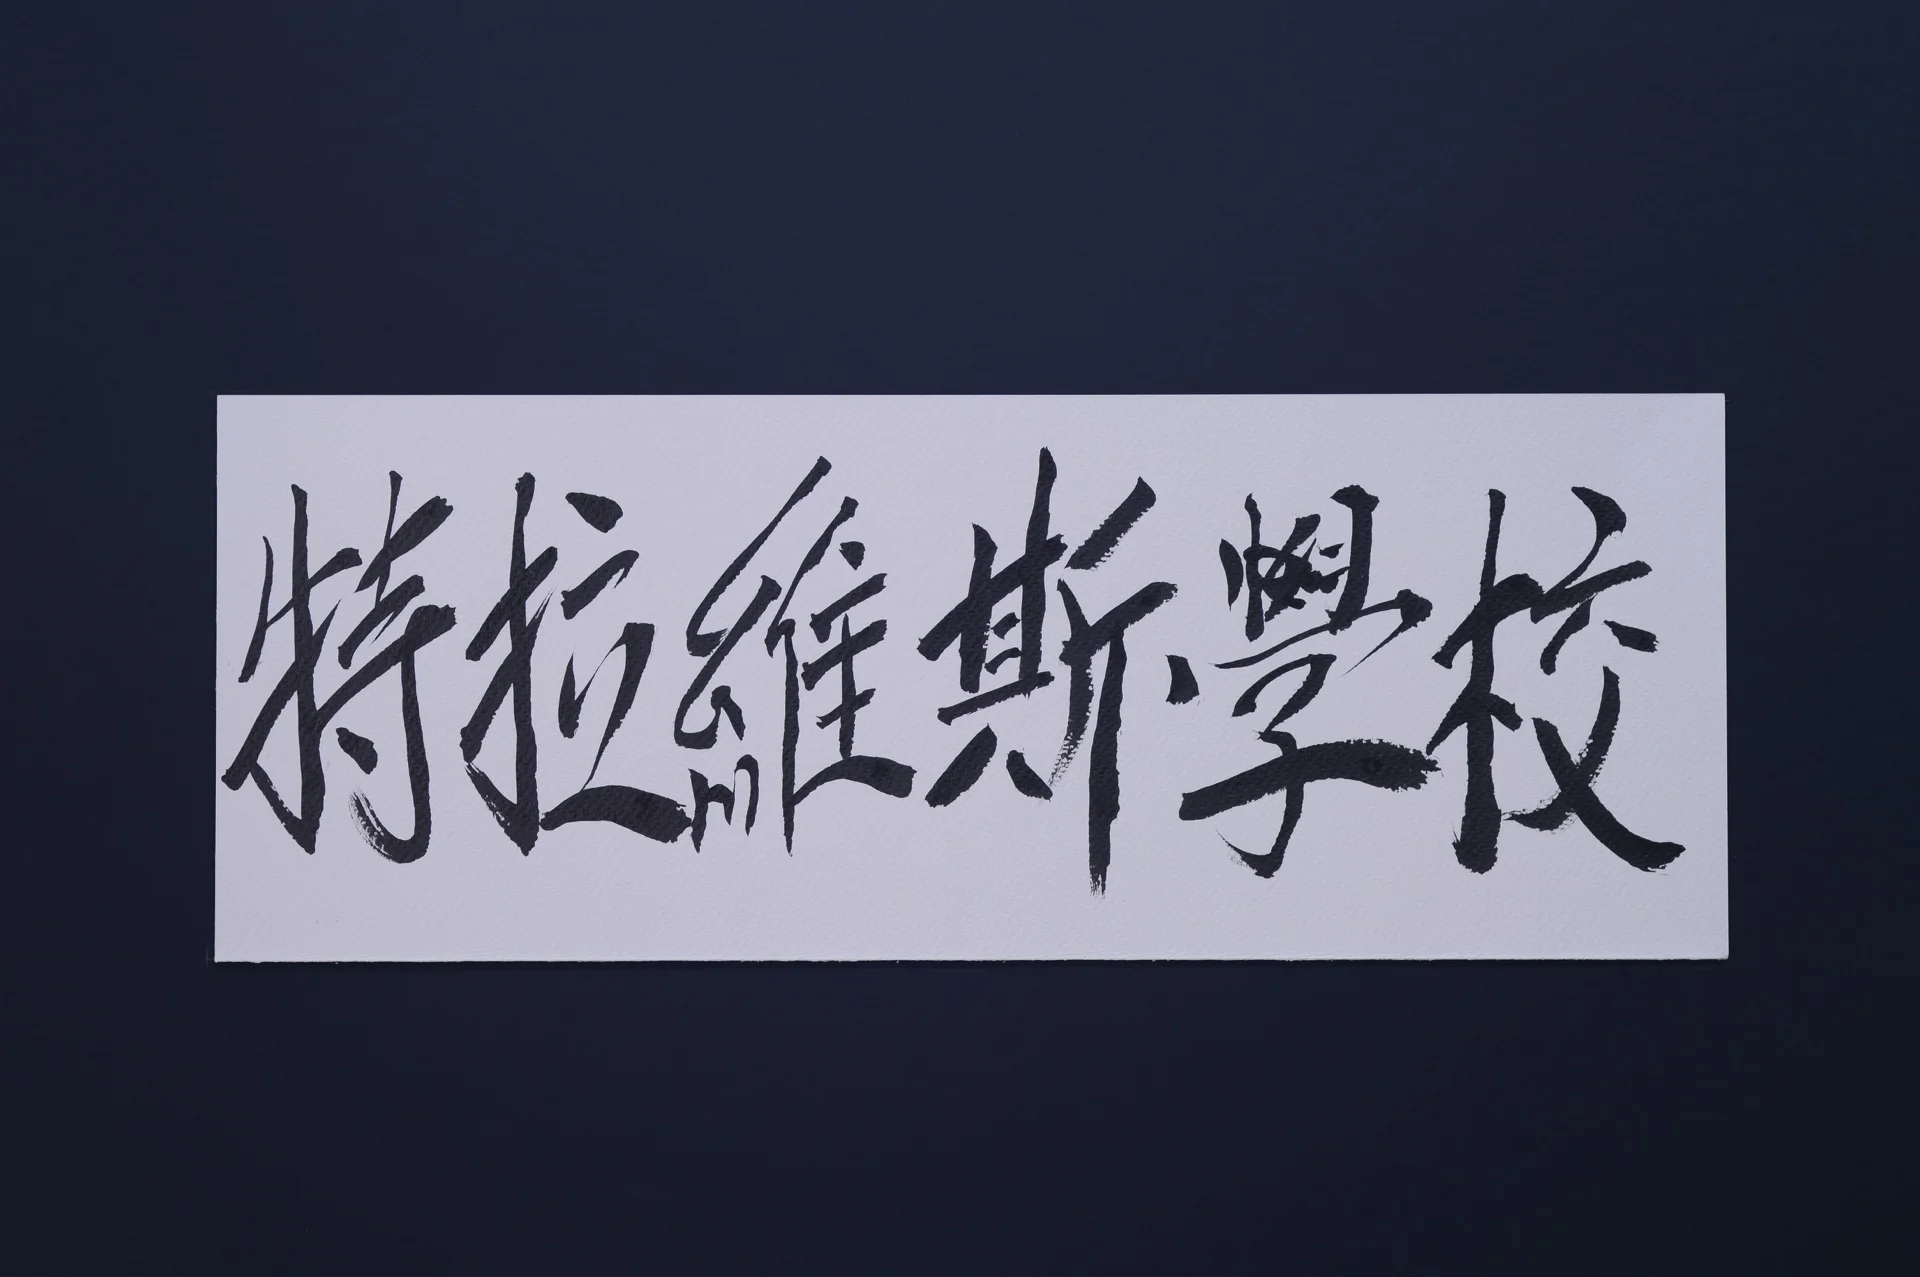 特拉維斯學校